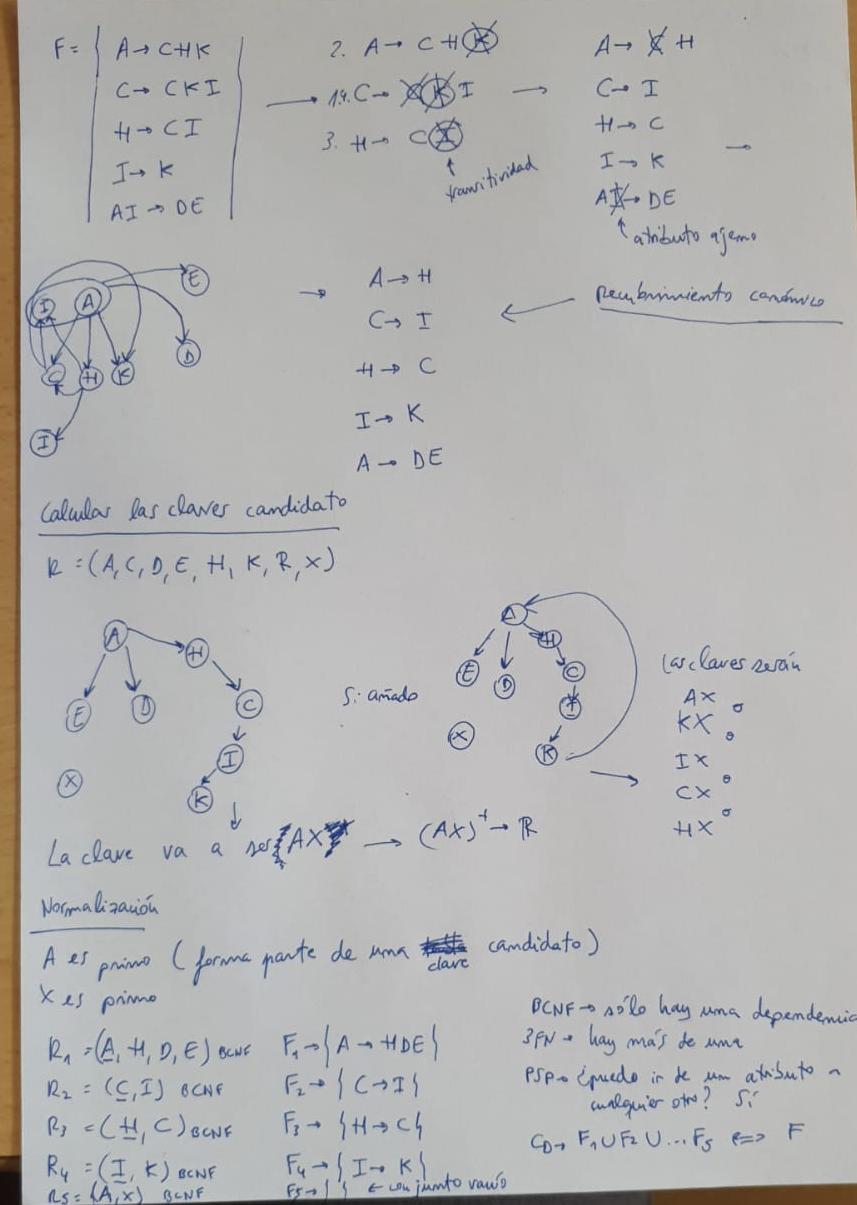 F = { A → CHK
C → CKI
H → CI
I → K
AI → DE }
2. A → CHK
1.4. C → CKI
3. H → CI
transitividad
A → C H
C → I
H → C
I → K
AI → DE
atributo ajeno
Recubrimiento canónico
A → H
C → I
H → C
I → K
A → DE
I A E D C H K I
Calcular las claves candidato
R = (A, C, D, E, H, K, R, X)
A H E D C I K X
Si añado
A H E D C I K X
Las claves serán
AX o
KX o
IX o
CX o
HX
La clave va a ser {AX → (AX)⁺ → R
Normalización
A es primo (forma parte de una clave candidato)
X es primo
R₁ = (A, H, D, E) BCNF F₁ → { A → HDE }
R₂ = (C, I) BCNF F₂ → { C → I }
R₃ = (H, C) BCNF F₃ → { H → C }
R₄ = (I, K) BCNF F₄ → { I → K }
R₅ = (A, X) BCNF F₅ → { } ← conjunto vacío
BCNF → sólo hay una dependencia
3FN → hay más de una
PSP → ¿puedo ir de un atributo a
cualquier otro? Sí
CD → F₁ ∪ F₂ ∪ ... F₅ ⟺ F